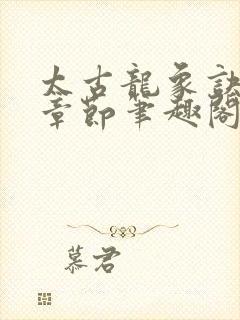 太古龍象訣
章節筆趣閣
慕君